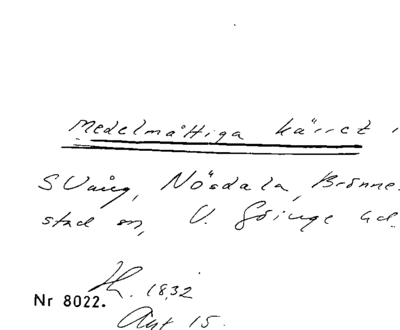 Medelmåttiga kärret i
S Vång, Nösdala, Brönne-
stad sn, V. Göinge hd.
H. 1832
Nr 8022.
Akt 15.